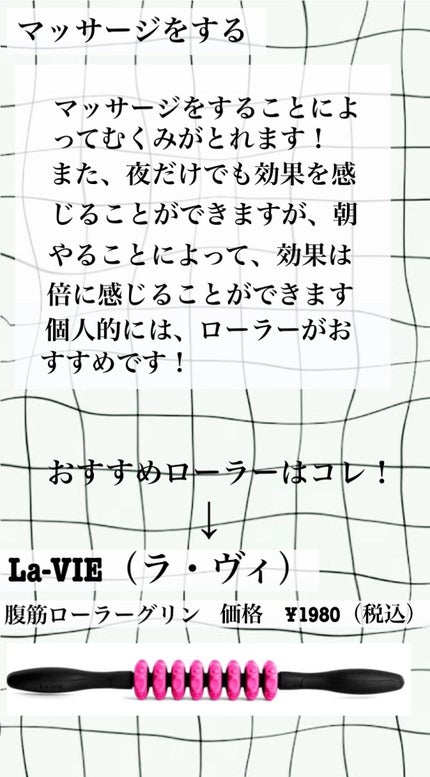 マッサージをする
マッサージをすることによ
ってむくみがとれます！
また、夜だけでも効果を感
じることができますが、朝
やることによって、効果は
倍に感じることができます
個人的には、ローラーがお
すすめです！
おすすめローラーはコレ！
↓
La-VIE（ラ・ヴィ）
腹筋ローラーグリン　価格　¥1980（税込）